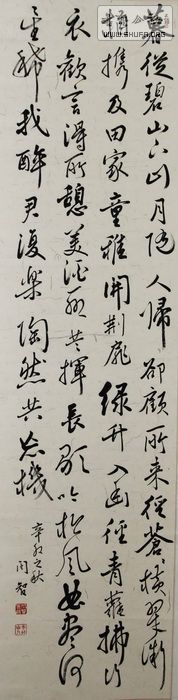 暮從碧山下山月隨人歸卻顧所來徑蒼蒼橫翠微
相攜及田家童稚開荊扉綠竹入幽徑青蘿拂行
衣歡言得所憩美酒聊共揮長歌吟松風曲盡河
星稀我醉君復樂陶然共忘機
辛卯之秋